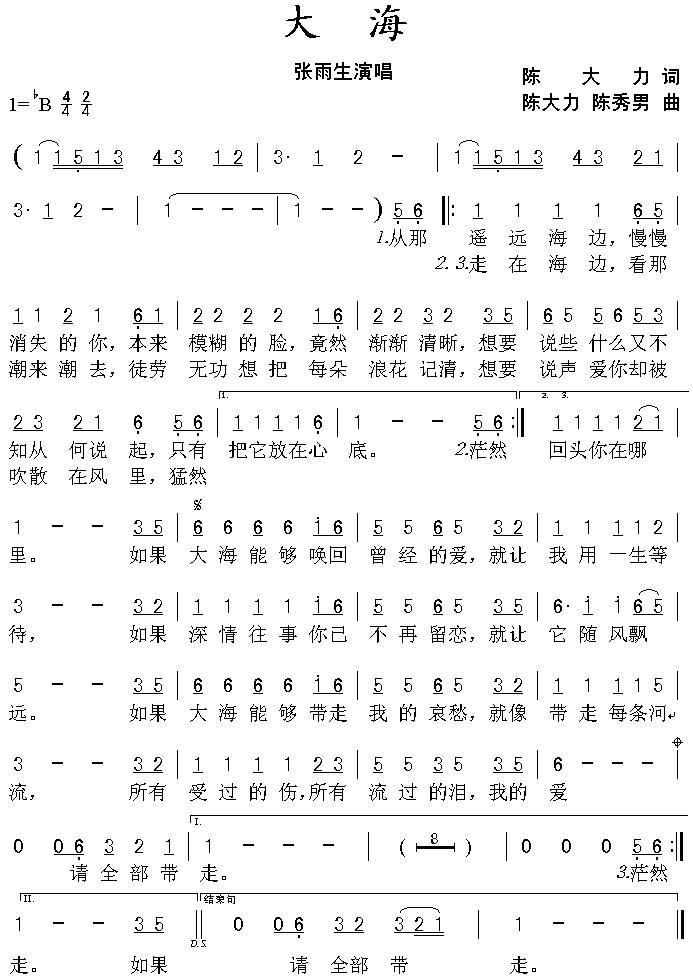 大 海
张雨生演唱
陈 大 力 词
1=♭B 4/4 2/4 陈大力 陈秀男 曲
( 1 1 5 1 3 4 3 1 2 | 3· 1 2 － | 1 1 5 1 3 4 3 2 1 |
3· 1 2 － | 1 － － | 1 － ) 5 6 ‖: 1 1 1 1 6 5 |
1.从那 遥 远 海 边，慢慢
2. 3.走 在 海 边，看那
1 1 2 1 6 1 | 2 2 2 2 1 6 | 2 2 3 2 3 5 | 6 5 5 6 5 3 |
消失 的 你，本来 模糊 的 脸，竟然 渐渐 清晰，想要 说些 什么又不
潮来 潮 去，徒劳 无功 想 把 每朵 浪花 记清，想要 说声 爱你却被
1. 2. 3.
2 3 2 1 6 5 6 | 1 1 1 1 6 | 1 － － 5 6 :‖ 1 1 1 1 2 1 |
知从 何说 起，只有 把它放在心 底。 2.茫然 回头你在哪
吹散 在风 里，猛然
1 － － 3 5 | 6 6 6 6 1 6 | 5 5 6 5 3 2 | 1 1 1 1 2 |
里。 如果 大 海 能 够 唤回 曾 经 的爱，就让 我 用 一生等
3 － － 3 2 | 1 1 1 1 1 6 | 5 5 6 5 3 5 | 6· 1 1 6 5 |
待， 如果 深 情 往 事 你己 不 再 留恋，就让 它 随 风飘
5 － － 3 5 | 6 6 6 6 1 6 | 5 5 6 5 3 2 | 1 1 1 1 2 |
远。 如果 大 海 能 够 带走 我 的 哀愁，就像 带 走 每条河
3 － － 3 2 | 1 1 1 1 2 3 | 5 5 3 5 3 5 | 6 － － |
流， 所有 受 过 的 伤，所有 流 过 的泪，我的 爱
I.
0 0 6 3 2 1 | 1 － － － | ( 8 ) | 0 0 0 5 6 :‖
请 全 部 带 走。 3.茫然
II. 结束句
1 － － 3 5 ‖ 0 0 0 6 3 2 | 3 2 1 1 － － ‖
D.S.
走。 如果 请 全部 带 走。